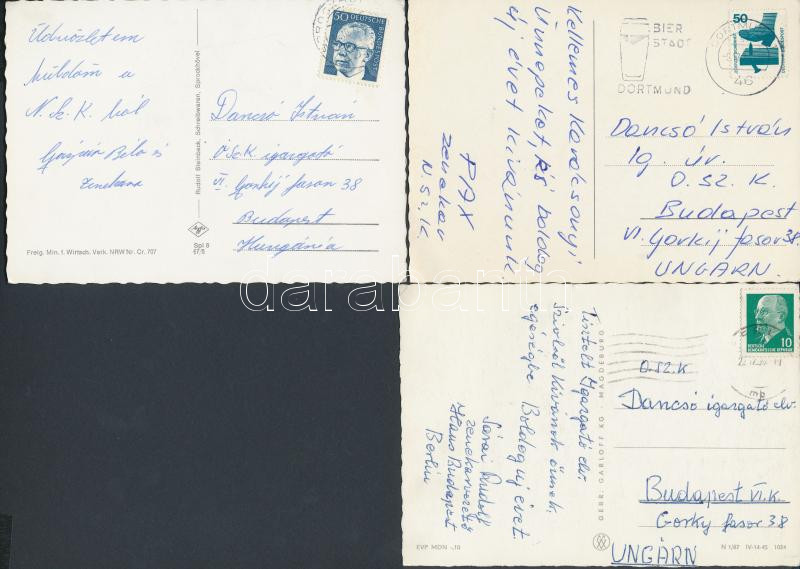 Üdvözletem
küldöm a
N. Sz. K. ból
Béla és
zenekara
Rudolf Steinbeck, Schreibwaren, Sprockhövel
Agfa
Spl 8
67/5
Freig. Min. f. Wirtsch. Verk. NRW Nr. Cr. 707
50 DEUTSCHE BUNDESPOST
Dancsó István
O Sz K igazgató
VI. Gorkij fasor 38
Budapest
Hungária
Kellemes Karácsonyi
Ünnepeket, és boldog
új évet kívánunk
PAX
zenekar
N. Sz. K.
BIER
STADT
DORTMUND
50
46
Dancsó István
Ig. úr.
O. SZ. K.
Budapest
VI. Gorkij fasor 38.
UNGARN.
Tisztelt Igazgató elv.
Szívből Kívánok önnek
egészségbe Boldog új évet.
Sárai Rudolf
zenekarvezető
Haus Budapest
Berlin
GEBR. GARLOFF KG · MAGDEBURG
EVP MDN -,10
10
DEUTSCHE DEMOKRATISCHE REPUBLIK
O. SZ. K
Dancsó igazgató elv.
Budapest VI. k.
Gorky fasor 38
UNGARN
N 1/67 IV-14-45 1024
darabanth